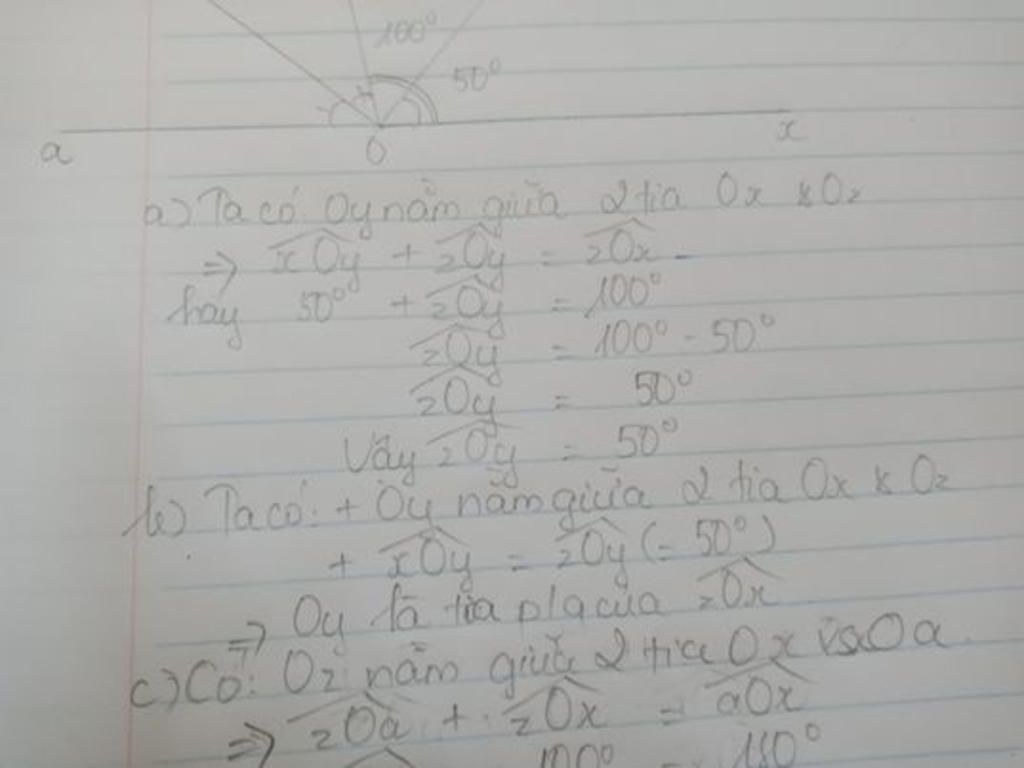 100°
50°
a
O
x
a) Ta có Oy nằm giữa 2 tia Ox & Oz
=> xOy + zOy = zOx
hay 50° + zOy = 100°
zOy = 100° - 50°
zOy = 50°
Vậy zOy = 50°
b) Ta có: + Oy nằm giữa 2 tia Ox & Oz
+ xOy = zOy (= 50°)
=> Oy là tia pg của zOx
c) Có: Oz nằm giữa 2 tia Ox và Oa
=> zOa + zOx = aOx
100° = 180°